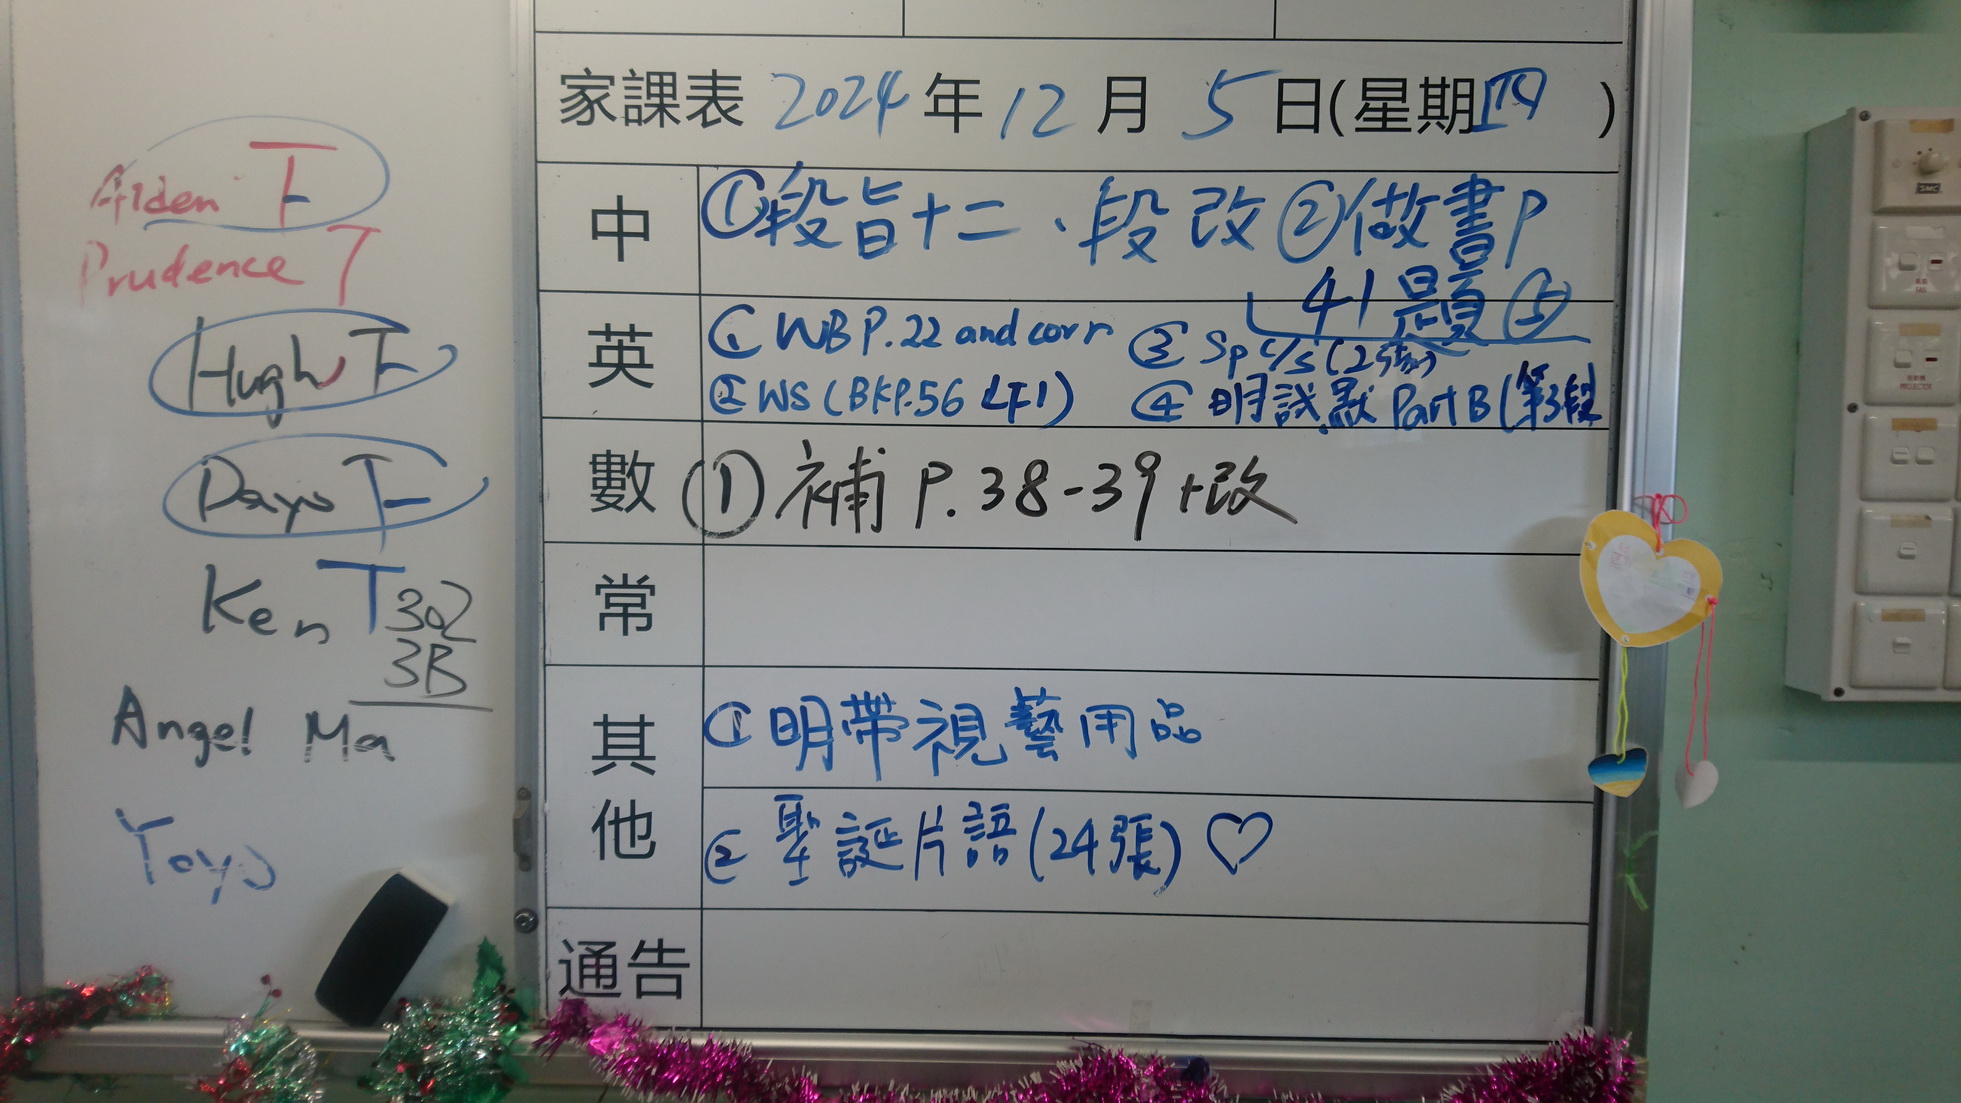 Aiden T
Prudence T
Hugh T
Dayo T
Ken T
3B
Angel Ma
Yoyo
家課表 2024 年 12 月 5 日(星期四 )
中 ①段旨十二、段改②做書P
41題⑤
英 ① WB P.22 and corr ③ Sp c/s (2張)
② WS (BKP.56 4F1) ④ 明試默 Part B (第3段
數 ① 補 P.38-39+改
常
其他 ① 明帶視藝用品
② 聖誕片語(24張)♡
通告
SMC